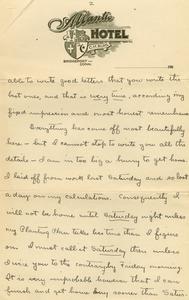 2
Atlantic
HOTEL
BRIDGEPORT
CONN.
19
able to write good letters that you write the
best ones, and that is every time, according my
good impression and most honest remembrance
Everything has come off most beautifully
here - but I cannot stop to write you all the
details - I am in too big a hurry to get home.
I laid off from work last Saturday and so lost
a day on my calculations. Consequently I
will not be home until Saturday night unless
my Planting Thru takes less time than I figure
on. I must call it Saturday then unless
I wire you to the contrary by Friday morning.
It is very improbable however that I can
finish and get home any sooner than Satur